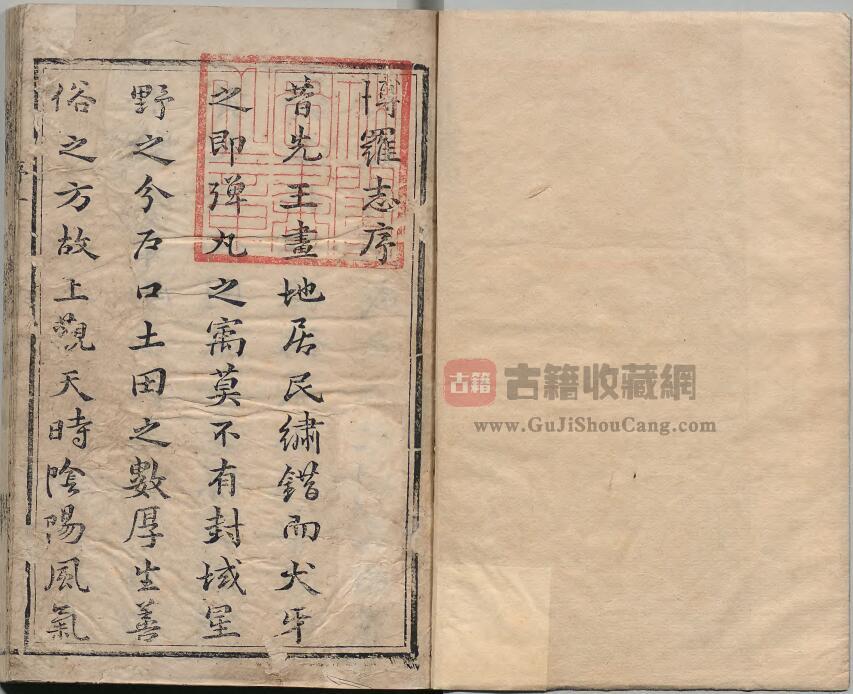 博羅志序
昔先王畫地居民繡錯而犬牙
之即彈丸之寓莫不有封域星
野之分石口土田之數厚生善
俗之方故上觀天時陰陽風氣
序一
古籍 古籍收藏網
www.GuJiShouCang.com